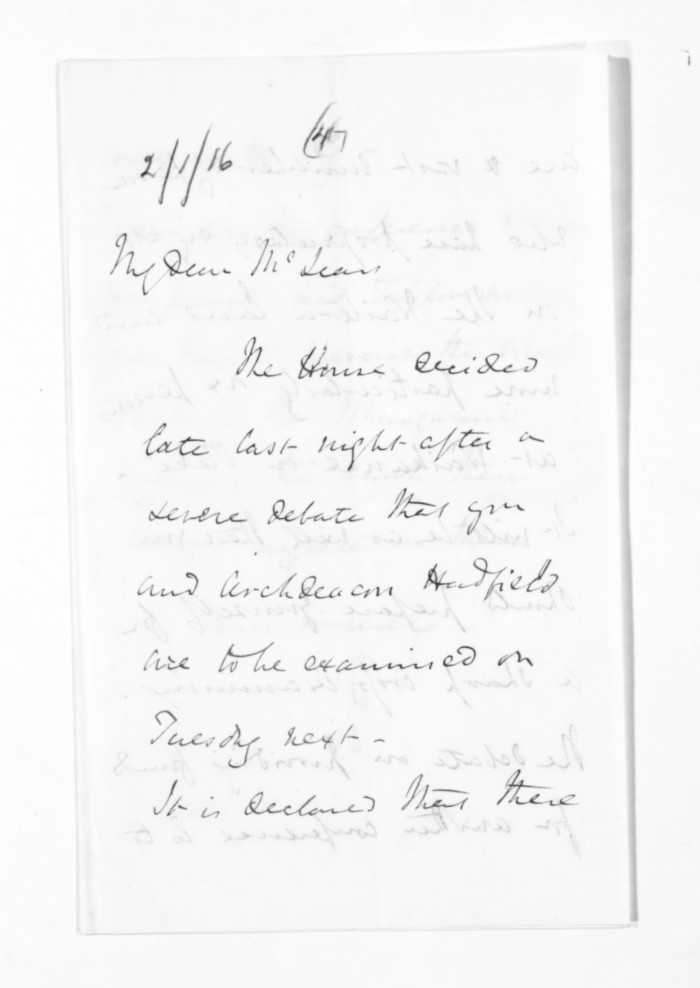 2/1/16 (47
My Dear McLean
The House decided
late last night after a
severe debate that you
and Archdeacon Hadfield
are to be examined on
Tuesday next -
It is declared that there